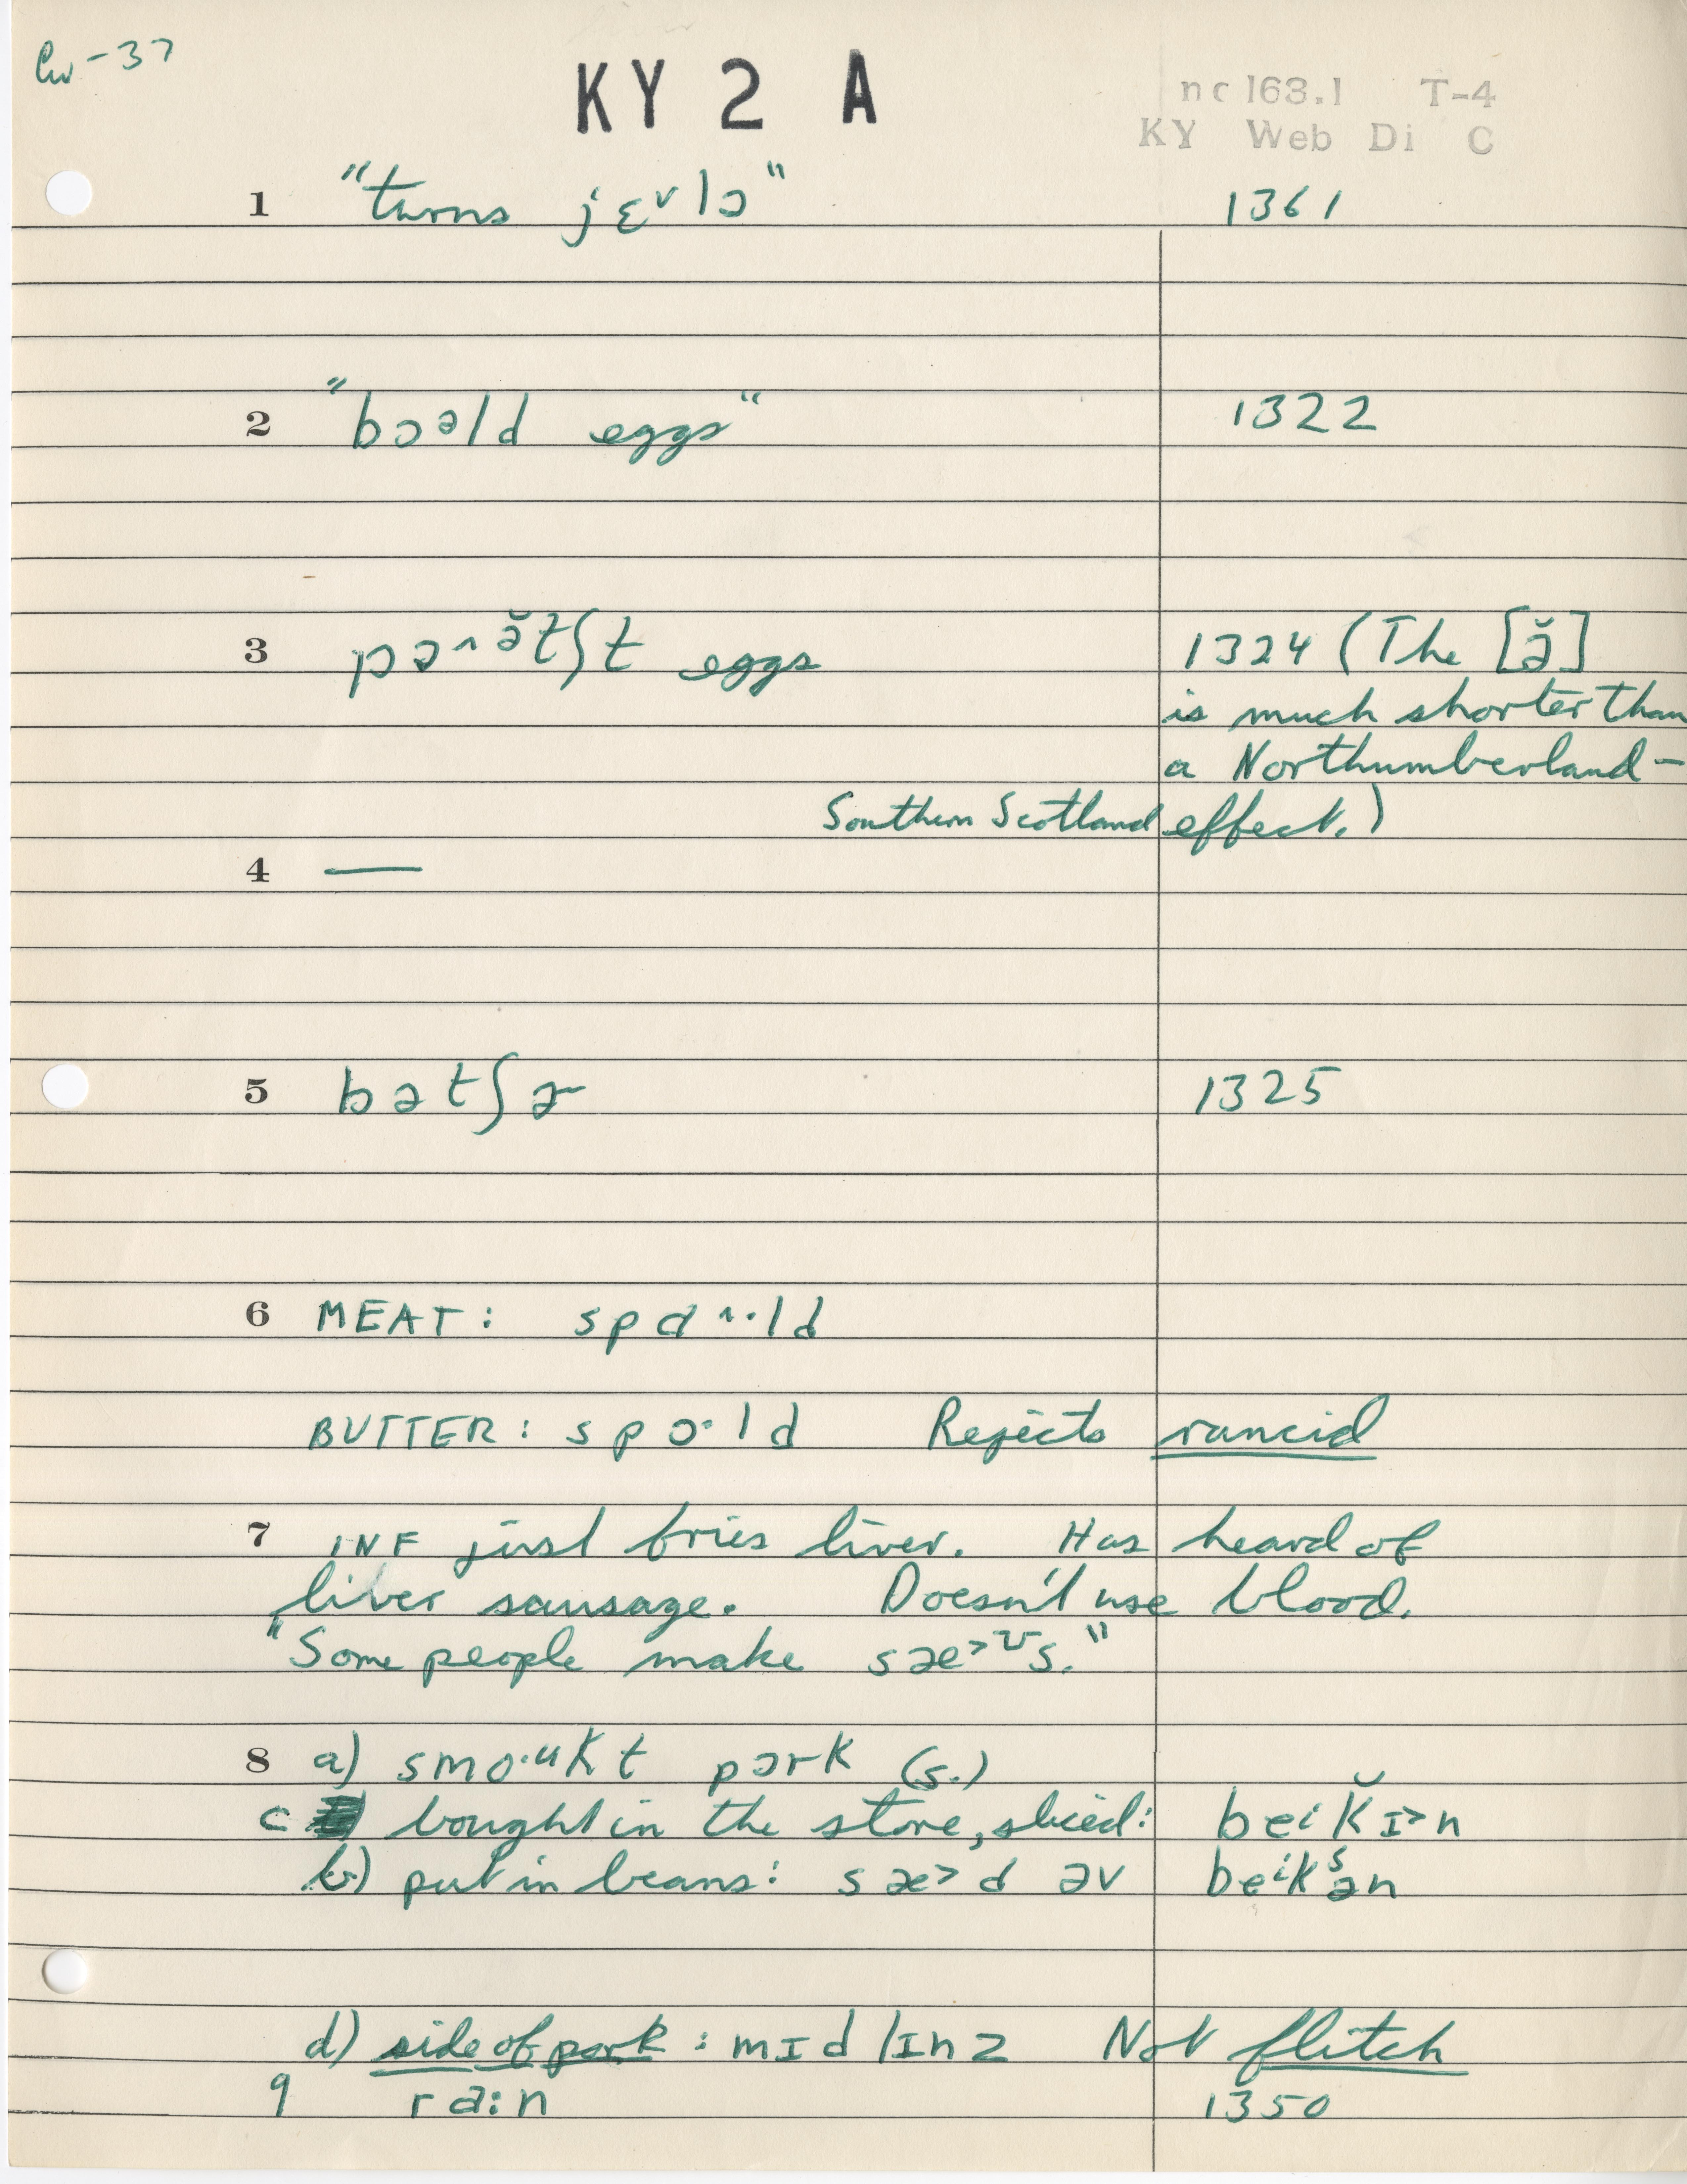 Cw-37
KY 2 A
nc 163.1 T-4
KY Web Di C
1 "turns jɛ˅lɔ" 1361
2 "bɔəld eggs" 1322
3 pɔ˄ə̆tʃt eggs 1324 (The [ə̆]
is much shorter than
a Northumberland-
Southern Scotland effect.)
4 —
5 bətʃɚ 1325
6 MEAT: spɑ˄·ld
BUTTER: spɔ·ld Rejects rancid
7 INF just fries liver. Has heard of
liver sausage. Doesn't use blood.
"Some people make sæ˃ʊs."
8 a) smo·ukt pɔrk (s.)
c bought in the store, sliced: beik̆ɪ˃n
b) put in beans: sæ˃d əv beikˢən
d) side of pork: mɪdlɪnz Not flitch
9 ra:n 1350